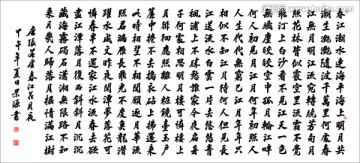 春江潮水連海平海上明月共
潮生灩灩隨波千萬里何處春
江無月明江流宛轉繞芳甸月
照花林皆似霰空里流霜不覺
飛汀上白沙看不見江天一色
無纖塵皎皎空中孤月輪江畔
何人初見月江月何年初照人
人生代代無窮已江月年年望
相似不知江月待何人但見長
江送流水白雲一片去悠悠青
楓浦上不勝愁誰家今夜扁舟
子何處相思明月樓可憐樓上
月徘徊應照離人妝鏡臺玉戶
簾中卷不去搗衣砧上拂還來
此時相望不相聞願逐月華流
照君鴻雁長飛光不度魚龍潛
躍水成文昨夜閑潭夢落花可
憐春半不還家江水流春去欲
盡江潭落月復西斜斜月沉沉
藏海霧碣石瀟湘無限路不知
乘月幾人歸落月搖情滿江樹
唐張若虛春江花月夜
甲午年夏日景源書